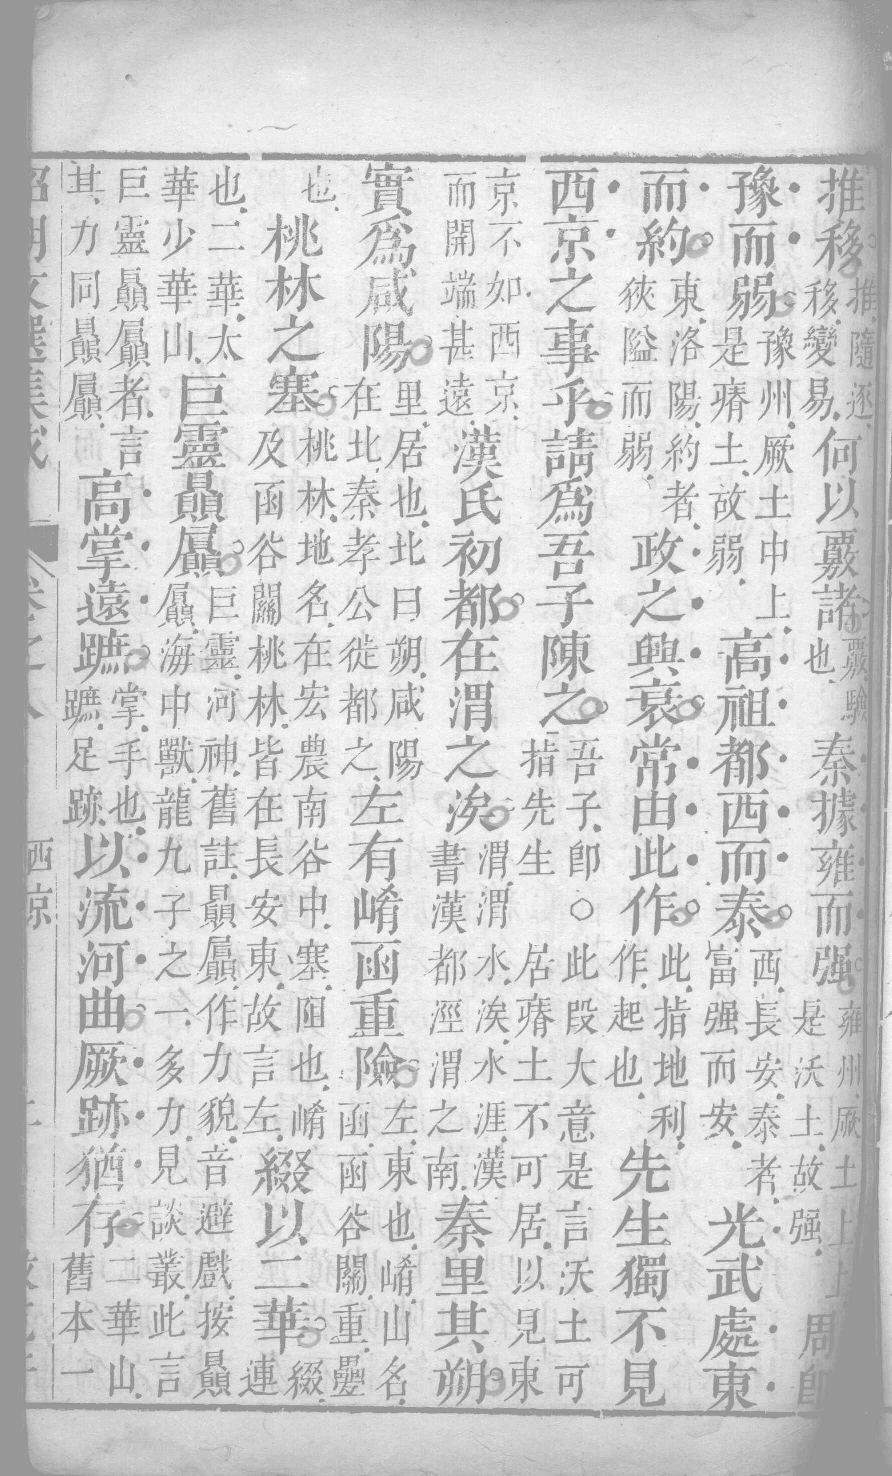 推移推隨逐移變易何以覈諸覈驗也秦據雍而强雍州厥土上上是沃土故强周即
豫而弱豫州厥土中上是瘠土故弱高祖都西而泰西長安泰者富强而安光武處東
而約東洛陽約者狹隘而弱政之興衰常由此作此指地利作起也先生獨不見
西京之事乎請爲吾子陳之吾子卽指先生○此段大意是言沃土可居瘠土不可居以見東
京不如西京而開端甚遠漢氏初都在渭之涘渭渭水涘水涯漢書漢都涇渭之南秦里其朔
實爲咸陽里居也北曰朔咸陽在北秦孝公徙都之左有崤函重險左東也崤山名函函谷關重疊
也桃林之塞桃林地名在宏農南谷中塞阻也崤及函谷關桃林皆在長安東故言左綴以二華綴連
也二華太華少華山巨靈贔屭巨靈河神舊註贔屭作力貌音避戲按贔屭海中獸龍九子之一多力見談叢此言
巨靈贔屭者言其力同贔屭高掌遠蹠掌手也蹠足跡以流河曲厥跡猶存二華山舊本一
昭明文選集成 卷之八